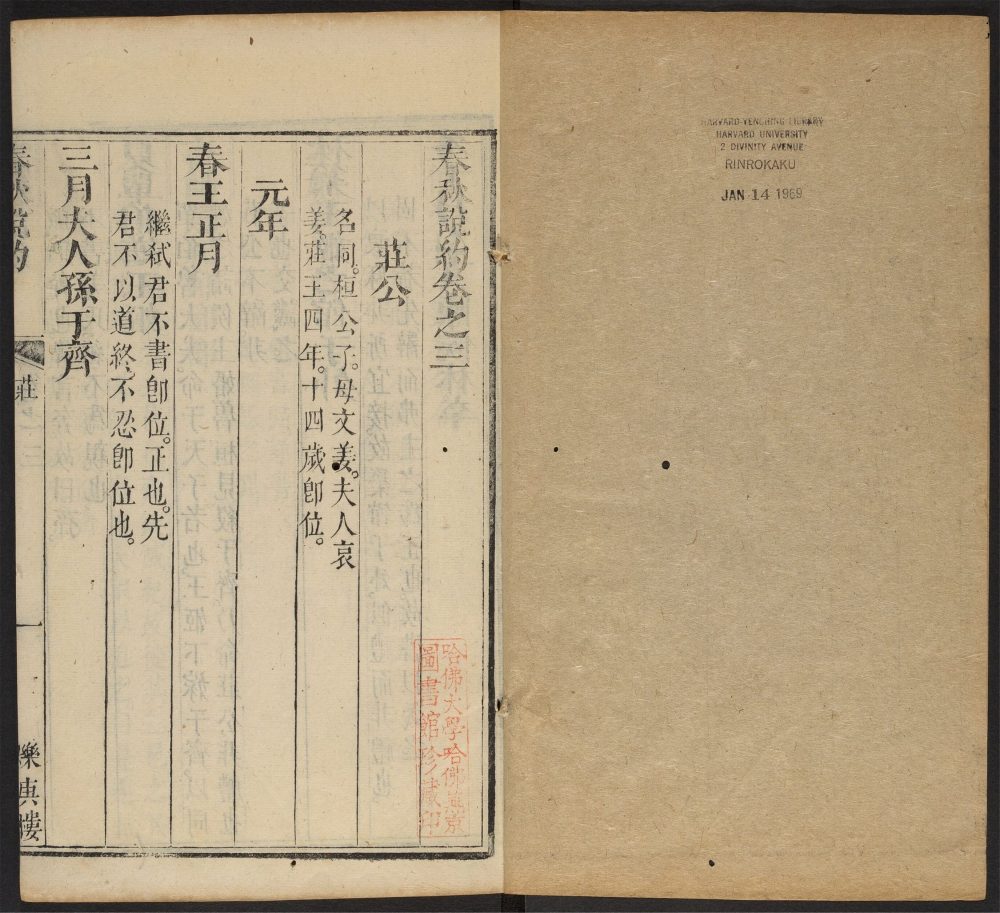 HARVARD-YENCHING LIBRARY
HARVARD UNIVERSITY
2 DIVINITY AVENUE
RINROKAKU
JAN 14 1969
春秋說約卷之三
莊公
名同。桓公子。母文姜。夫人哀
姜。莊王四年。十四歲卽位。
元年
春王正月
繼弒君不書卽位。正也。先
君不以道終。不忍卽位也。
三月夫人孫于齊
春秋說約
莊
一
樂典樓
哈佛大學哈佛燕京
圖書館珍藏印